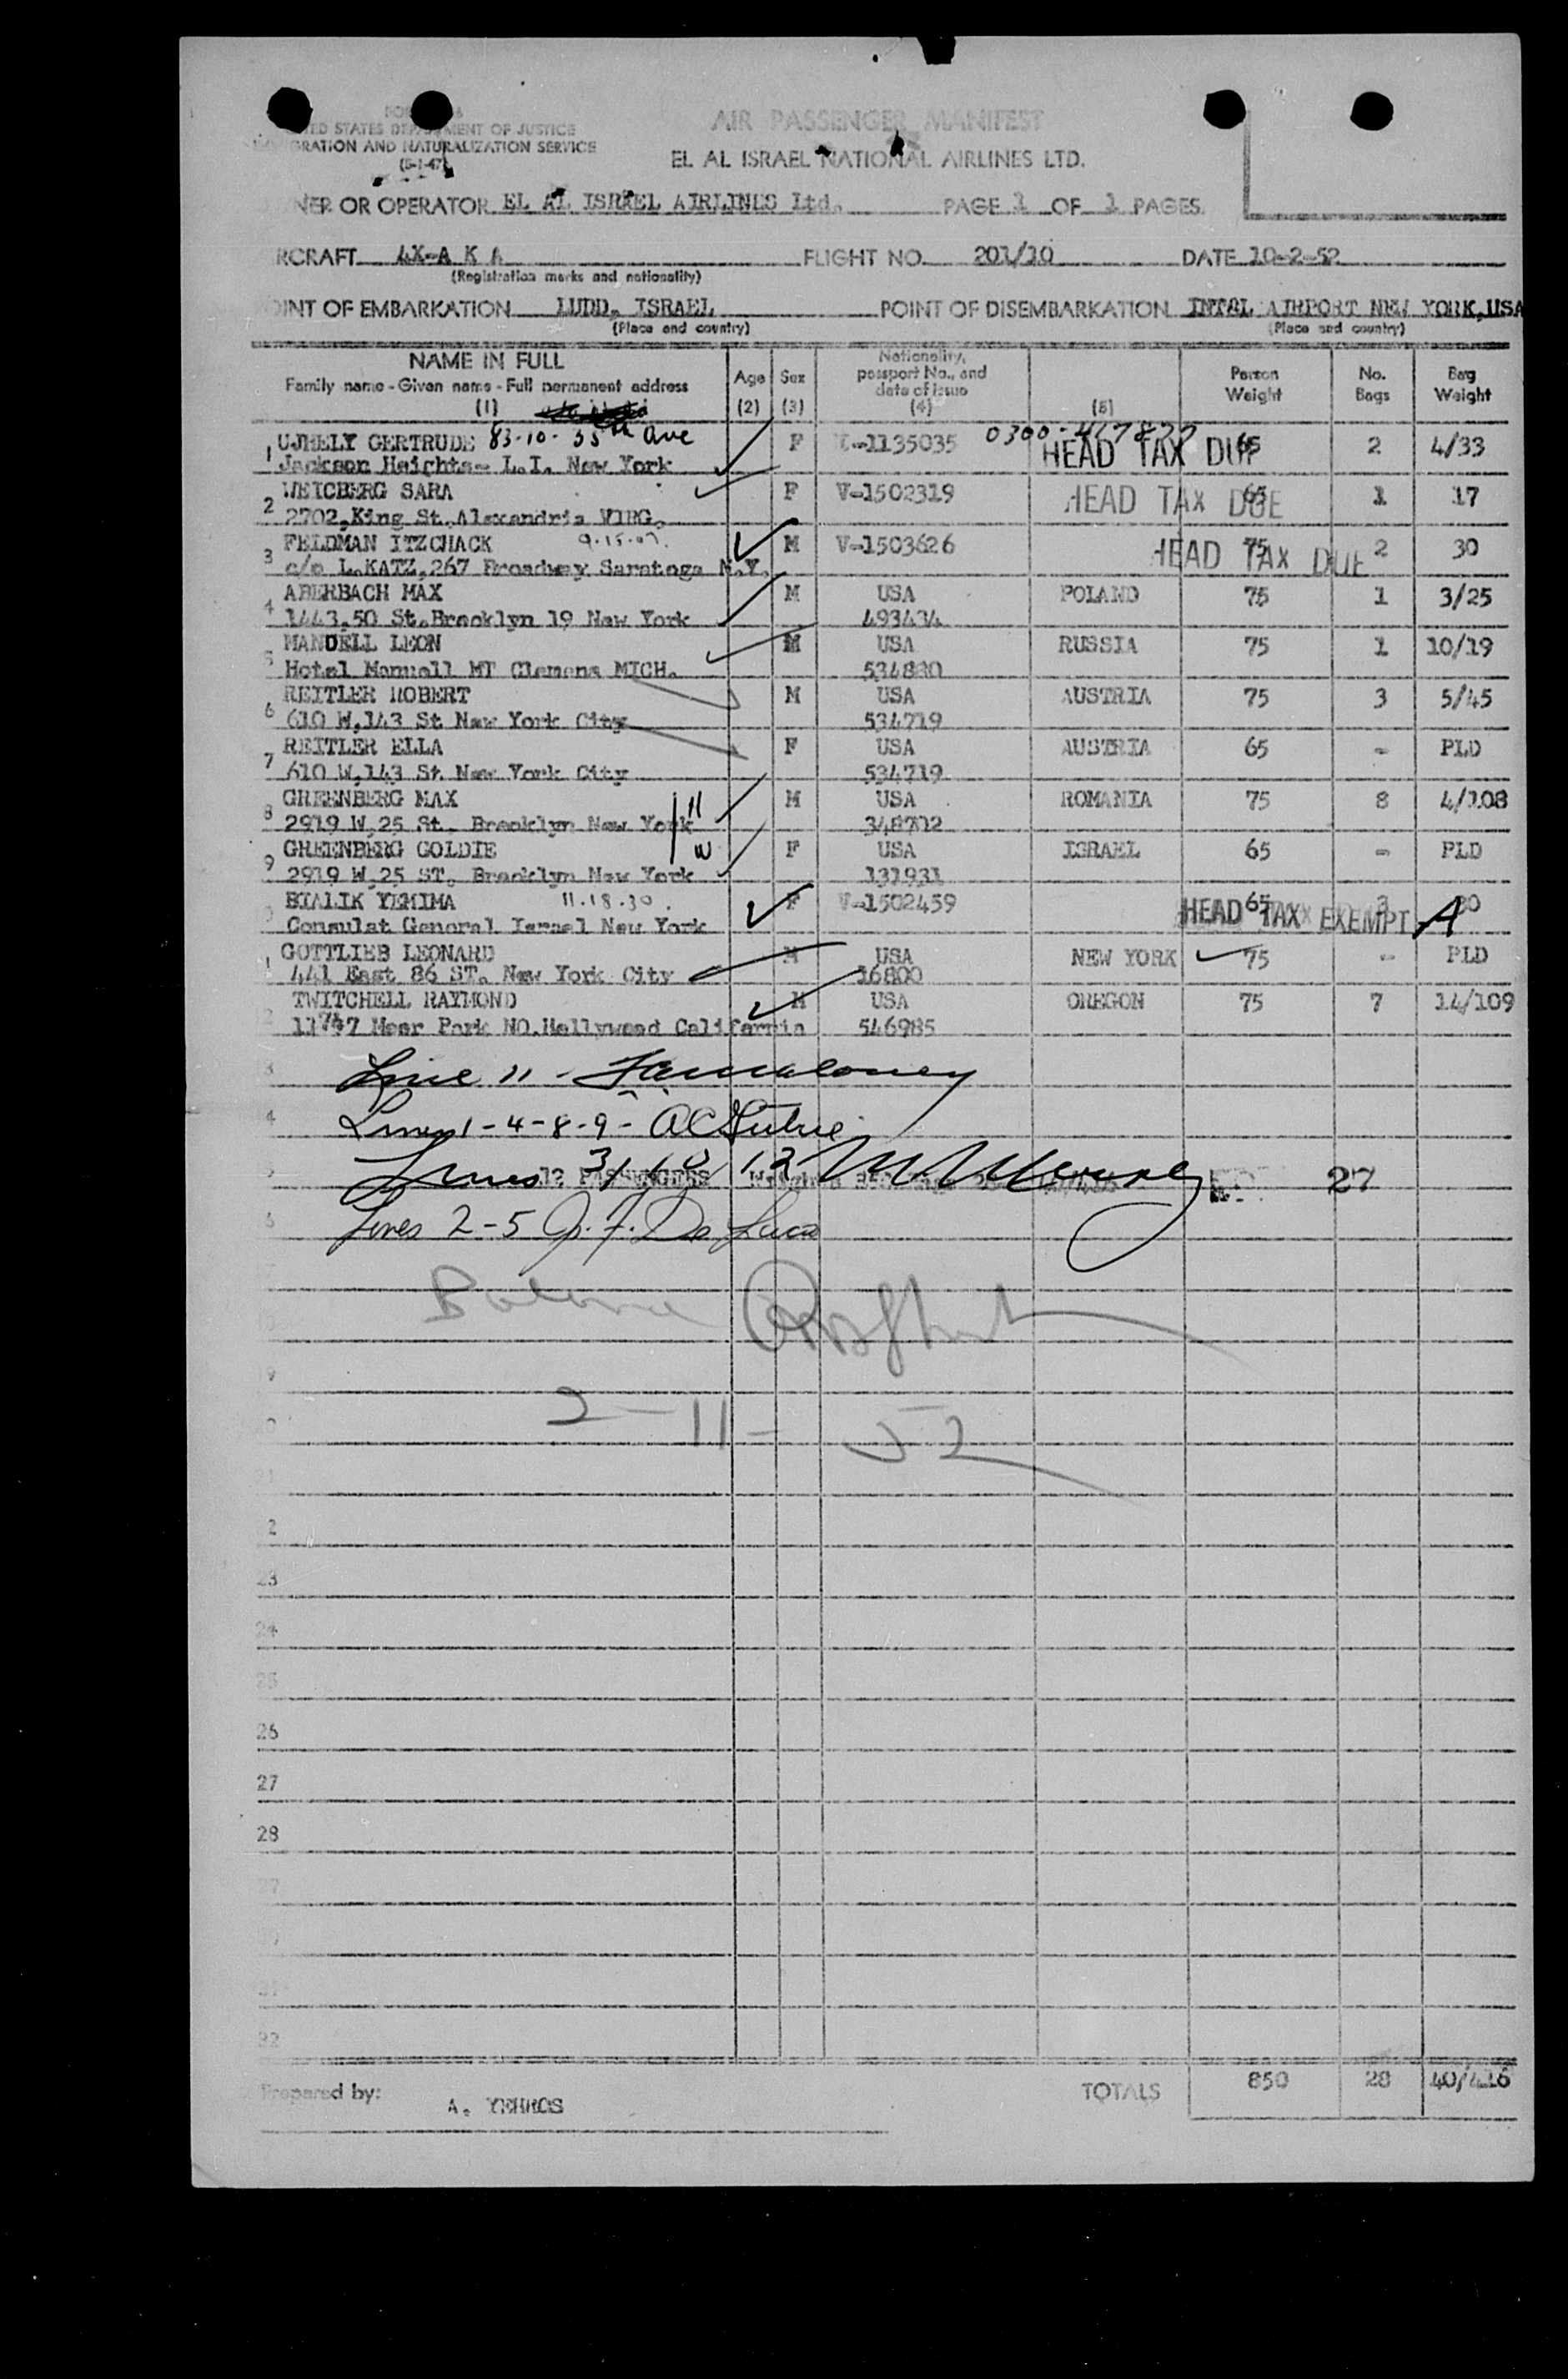 UNITED STATES DEPARTMENT OF JUSTICE
IMMIGRATION AND NATURALIZATION SERVICE
AIR PASSENGER MANIFEST
EL AL ISRAEL NATIONAL AIRLINES LTD.
NER OR OPERATOR EL AL ISRAEL AIRLINES Ltd. PAGE 1 OF 1 PAGES
RCRAFT 4X-A K A FLIGHT NO. 201/10 DATE 10-2-52
(Registration marks and nationality)
OINT OF EMBARKATION LUDD, ISRAEL POINT OF DISEMBARKATION INTAL AIRPORT NEW YORK, USA
(Place and country) (Place and country)
NAME IN FULL Age Sex Nationality, passport No., and date of issue Person Weight No. Bags Bag Weight
Family name - Given name - Full permanent address
(1) (2) (3) (4) (5)
1 UJHELY GERTRUDE 83-10-35th ave F V-1135035 HEAD TAX DUE 65 2 4/33
Jackson Heights- L.I. New York
2 WEICBERG SARA F V-1502319 HEAD TAX DUE 65 1 17
2702,King St.Alexandria VIRG.
3 FELDMAN ITZCHACK 9.15.07. M V-1503626 HEAD TAX DUE 75 2 30
c/o L.KATZ,267 Broadway Saratoga N.Y.
4 ABERBACH MAX M USA POLAND 75 1 3/25
1443,50 St.Brooklyn 19 New York 493434
5 MANDELL LEON M USA RUSSIA 75 1 10/19
Hotel Manuell MT Clemens MICH. 534880
6 REITLER ROBERT M USA AUSTRIA 75 3 5/45
610 W,143 St New York City 534719
7 REITLER ELLA F USA AUSTRIA 65 - PLD
610 W,143 St New York City 534719
8 GREENBERG MAX H M USA ROMANIA 75 8 4/108
2919 W,25 St. Brooklyn New York 348702
9 GREENBERG GOLDIE W F USA ISRAEL 65 - PLD
2919 W,25 ST. Brooklyn New York 131931
BIALIK YEMIMA 11.18.30. F V-1502459 HEAD TAX EXEMPT A 65 3 30
Consulat General Israel New York
GOTTLIEB LEONARD M USA NEW YORK 75 - PLD
441 East 86 ST. New York City 16800
TWITCHELL RAYMOND M USA OREGON 75 7 14/109
California 546985
Line 11 -
Lines 1-4-8-9-
Lines 3/10/12
12 PASSENGERS 27
Lines 2-5 J. F. De Luca
2-11-52
2
23
24
25
26
27
28
32
Prepared by: A. YEHROS TOTALS 850 28 40/416